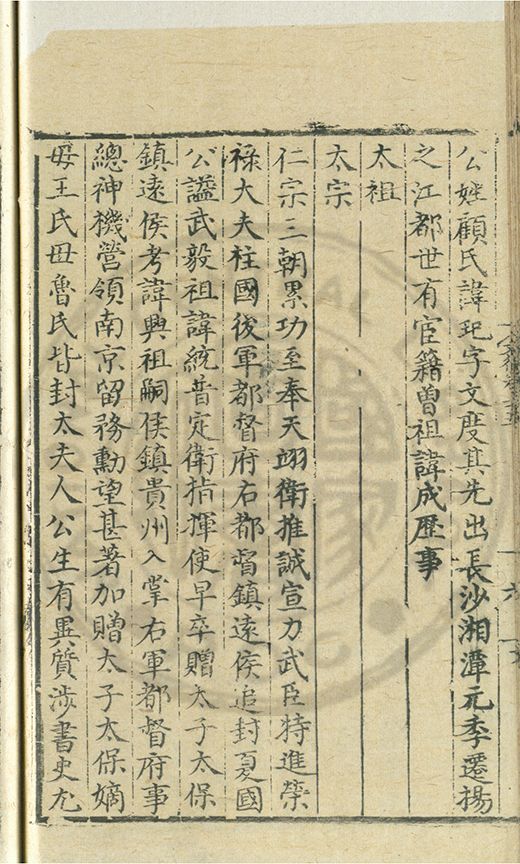 公姓顧氏諱玘字文度其先出長沙湘潭元季遷揚
之江都世有宦籍曾祖諱成歴事
太祖
太宗
仁宗三朝累功至奉天翊衛推誠宣力武臣特進榮
禄大夫柱國後軍都督府右都督鎮遠侯追封夏國
公謚武毅祖諱統普定衛指揮使早卒贈太子太保
鎮遠侯考諱興祖嗣侯鎮貴州入掌右軍都督府事
總神機營領南京留務勳望甚著加贈太子太保嫡
母王氏毋魯氏皆封太夫人公生有異質涉書史尤